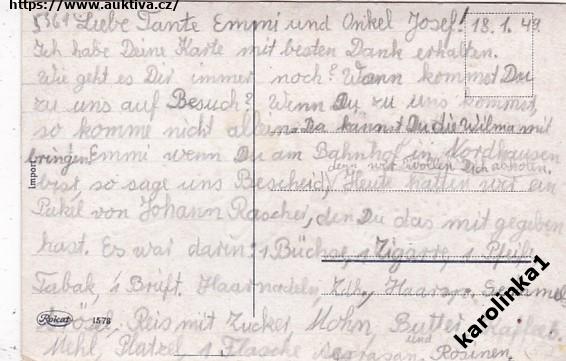 https://www.auktiva.cz/
5361 Liebe Tante Emmi und Onkel Josef! 18.1.49
Ich habe Deine Karte mit besten Dank erhalten.
Wie geht es Dir immer noch? Wann kommst Du
zu uns auf Besuch? Wenn Du zu uns kommst,
so komme nicht allein. Da kannst Du die Wilma mit
bringen. Emmi wenn Du am Bahnhof in Nordhausen
denn wir wollen Dich abholen.
bist, so sage uns Bescheid, Heute hatten wir ein
Pakil von Johann Rascher, den Du das mit gegeben
hast. Es war darin: 1 Büchse, 1 Zigarre, 1 Pfeife
Tabak, 1 Brift. Haarnadeln, Haar
Reis mit Zucker, Mohn, Butter
und
Mehl, Platzel 1 Flasche Rosinen
import
Rokat 1578
karolinka1